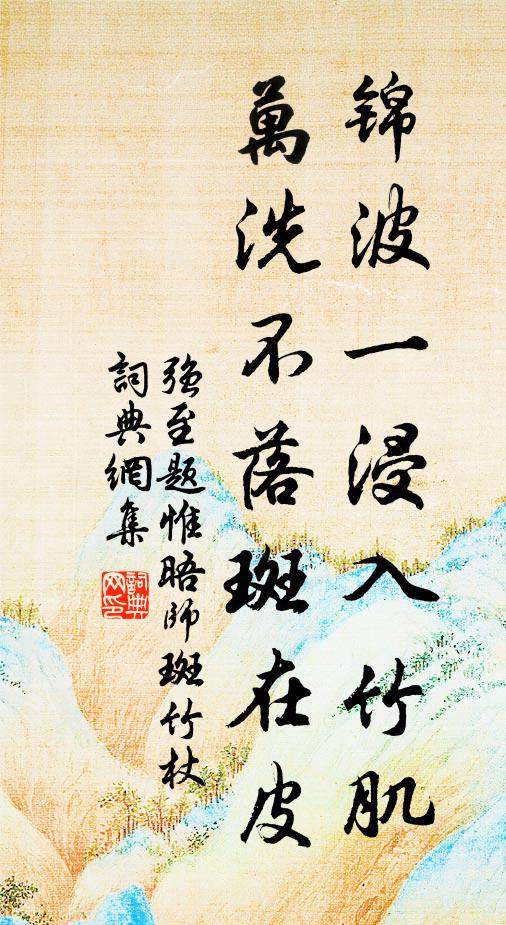 锦波一浸入竹肌
萬洗不落斑在皮
强至题惟晤師斑竹杖
詞典網集
詞典網印